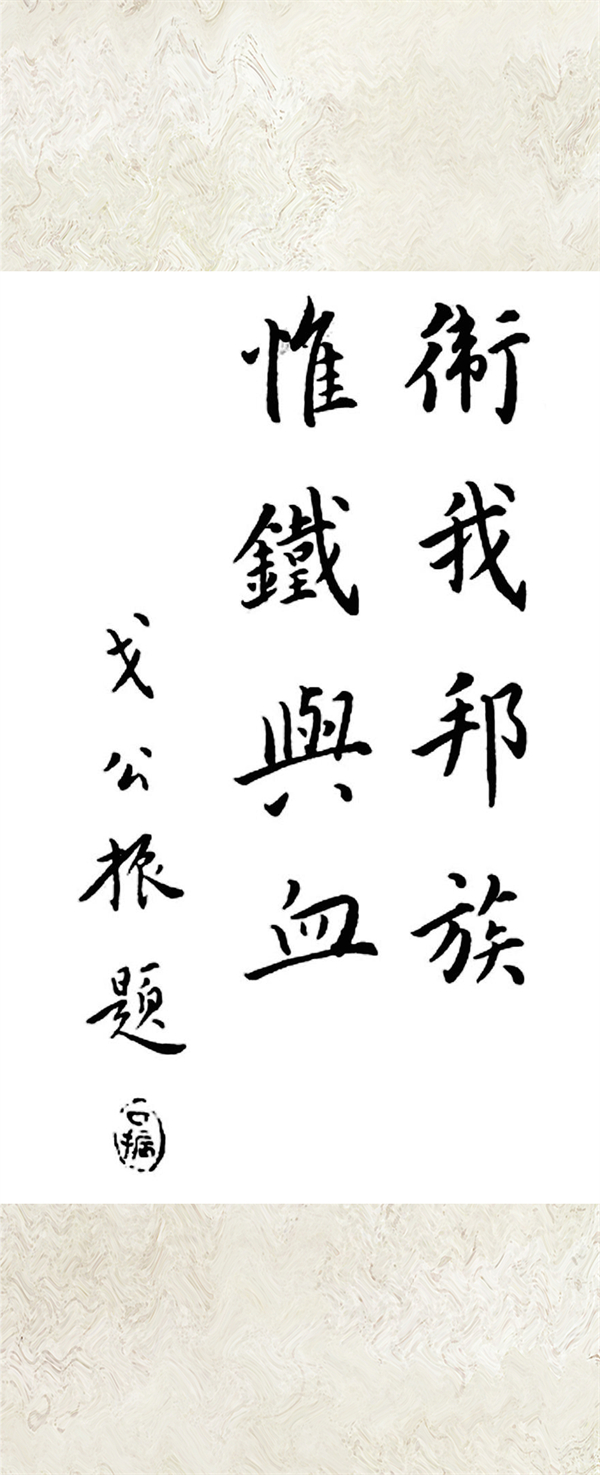 衛我邦族
惟鐵與血
戈公振題
公振